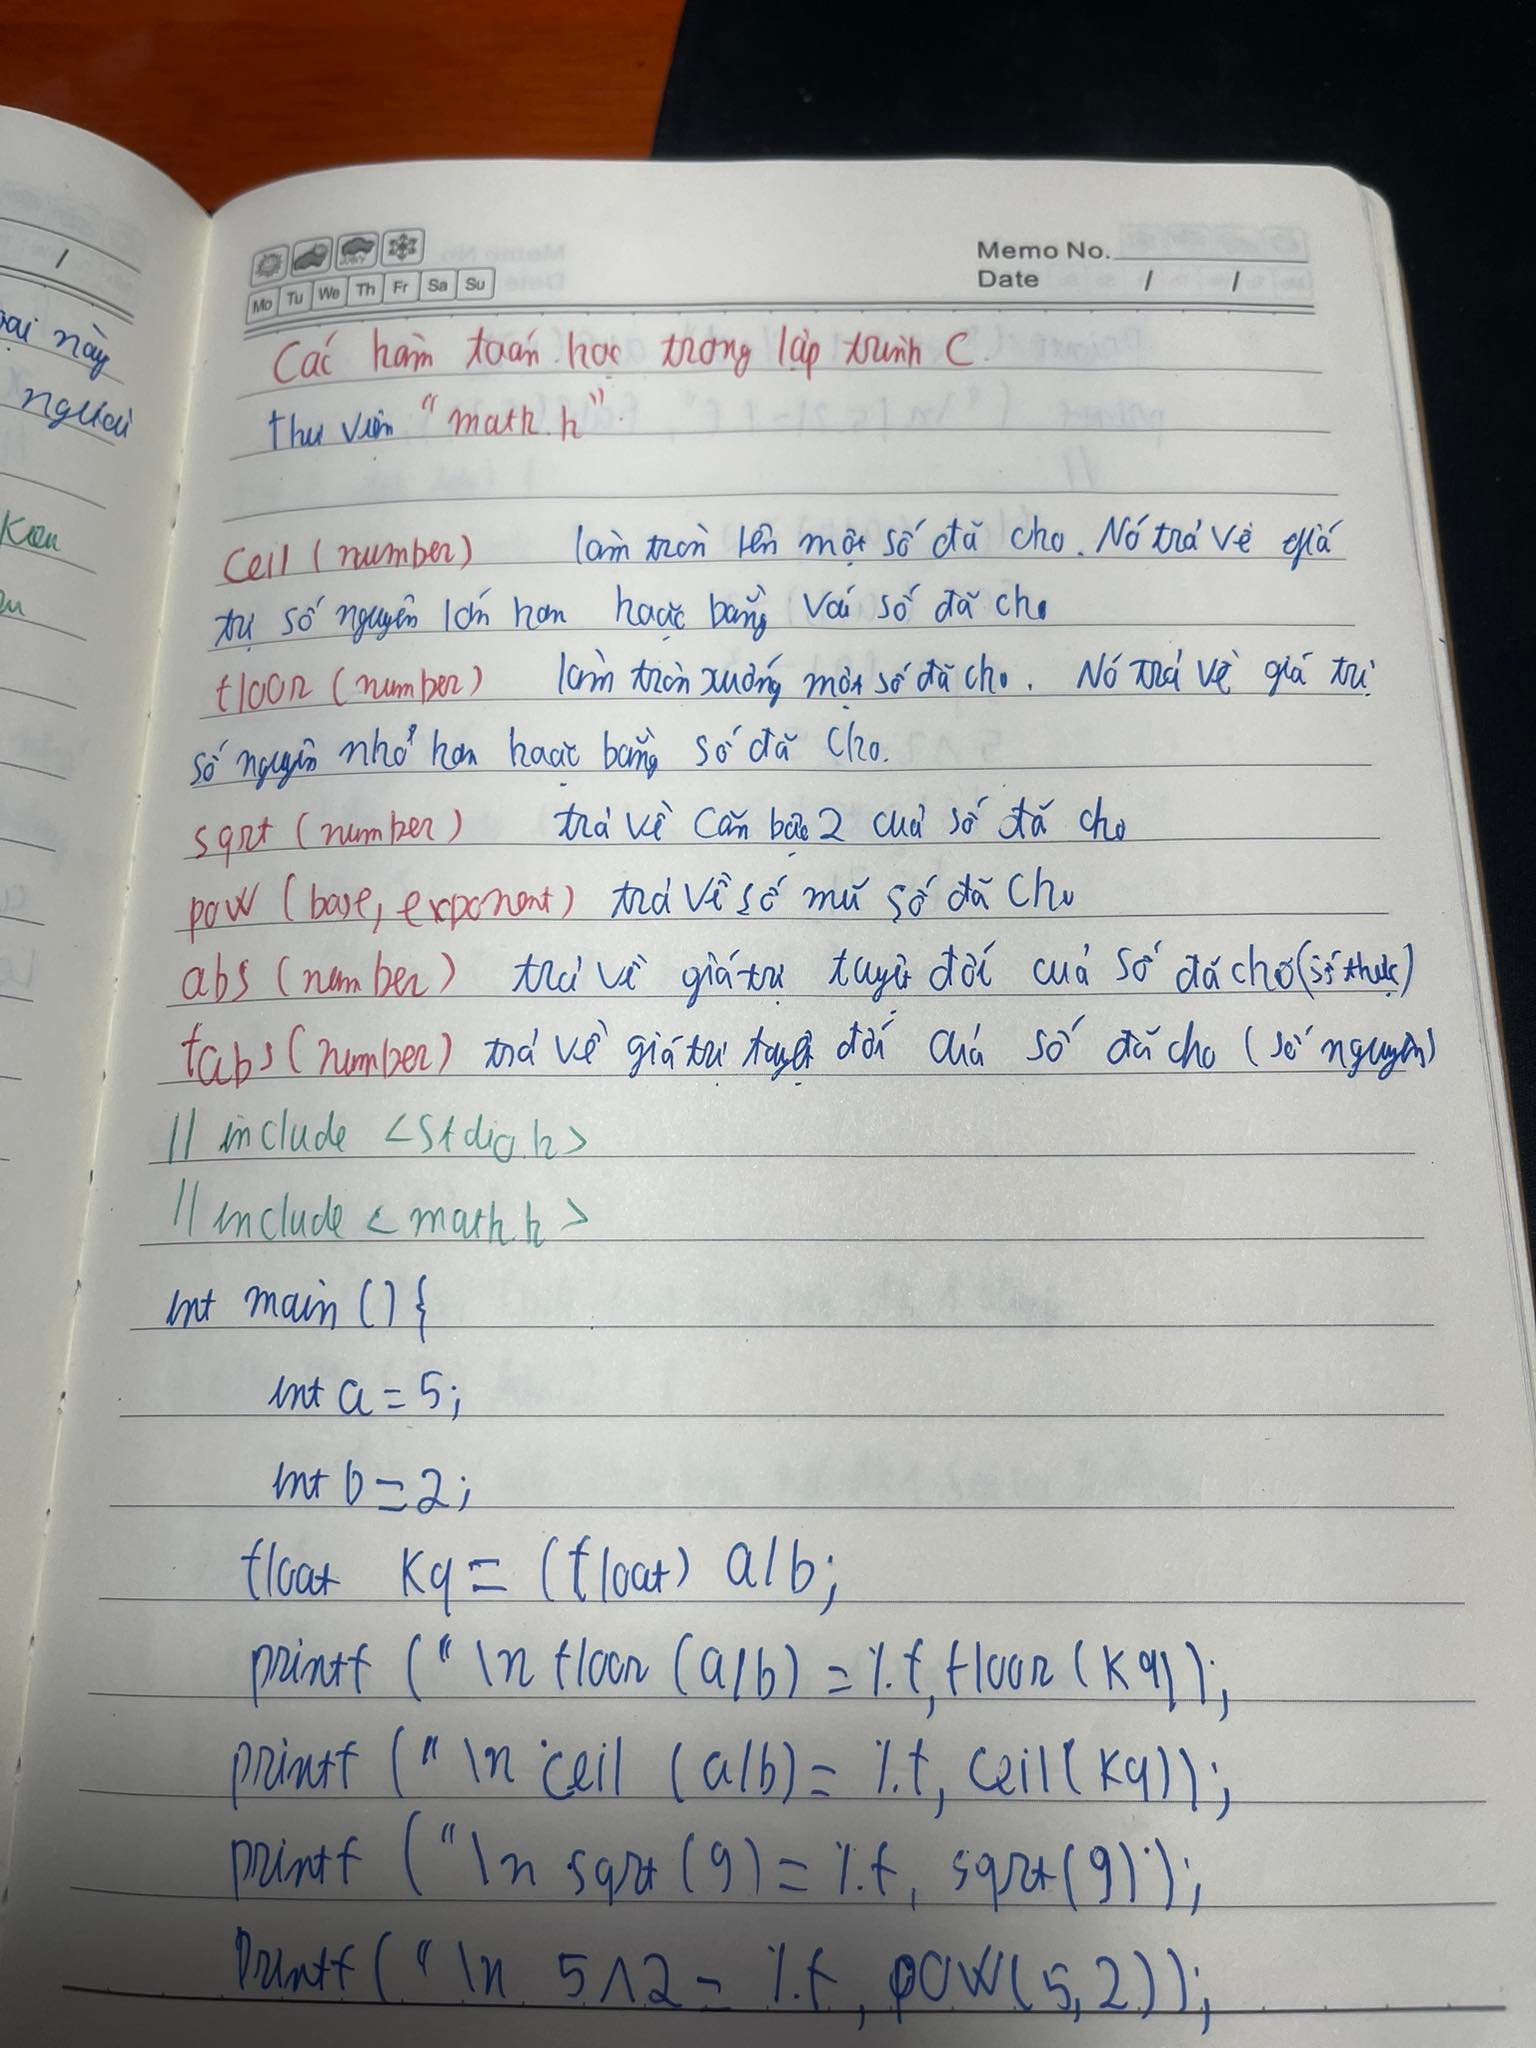 ại này
người
Mo Tu We Th Fr Sa Su
Memo No.
Date / /
Các hàm toán học trong lập trình C.
thư viện "math.h".
ceil (number) làm tròn lên một số đã cho. Nó trả về giá
trị số nguyên lớn hơn hoặc bằng với số đã cho
floor (number) làm tròn xuống một số đã cho. Nó trả về giá trị
số nguyên nhỏ hơn hoặc bằng số đã cho.
sqrt (number) trả về căn bậc 2 của số đã cho
pow (base, exponent) trả về số mũ số đã cho
abs (number) trả về giá trị tuyệt đối của số đã cho (số thực)
fabs (number) trả về giá trị tuyệt đối của số đã cho (số nguyên)
// include <stdio.h>
// include <math.h>
int main () {
int a = 5;
int b = 2;
float kq = (float) a/b;
printf (" \n floor (a/b) = %.f, floor (kq));
printf (" \n ceil (a/b) = %.f, ceil (kq));
printf (" \n sqrt (9) = %.f, sqrt (9));
printf (" \n 5^2 = %.f, pow (5,2));